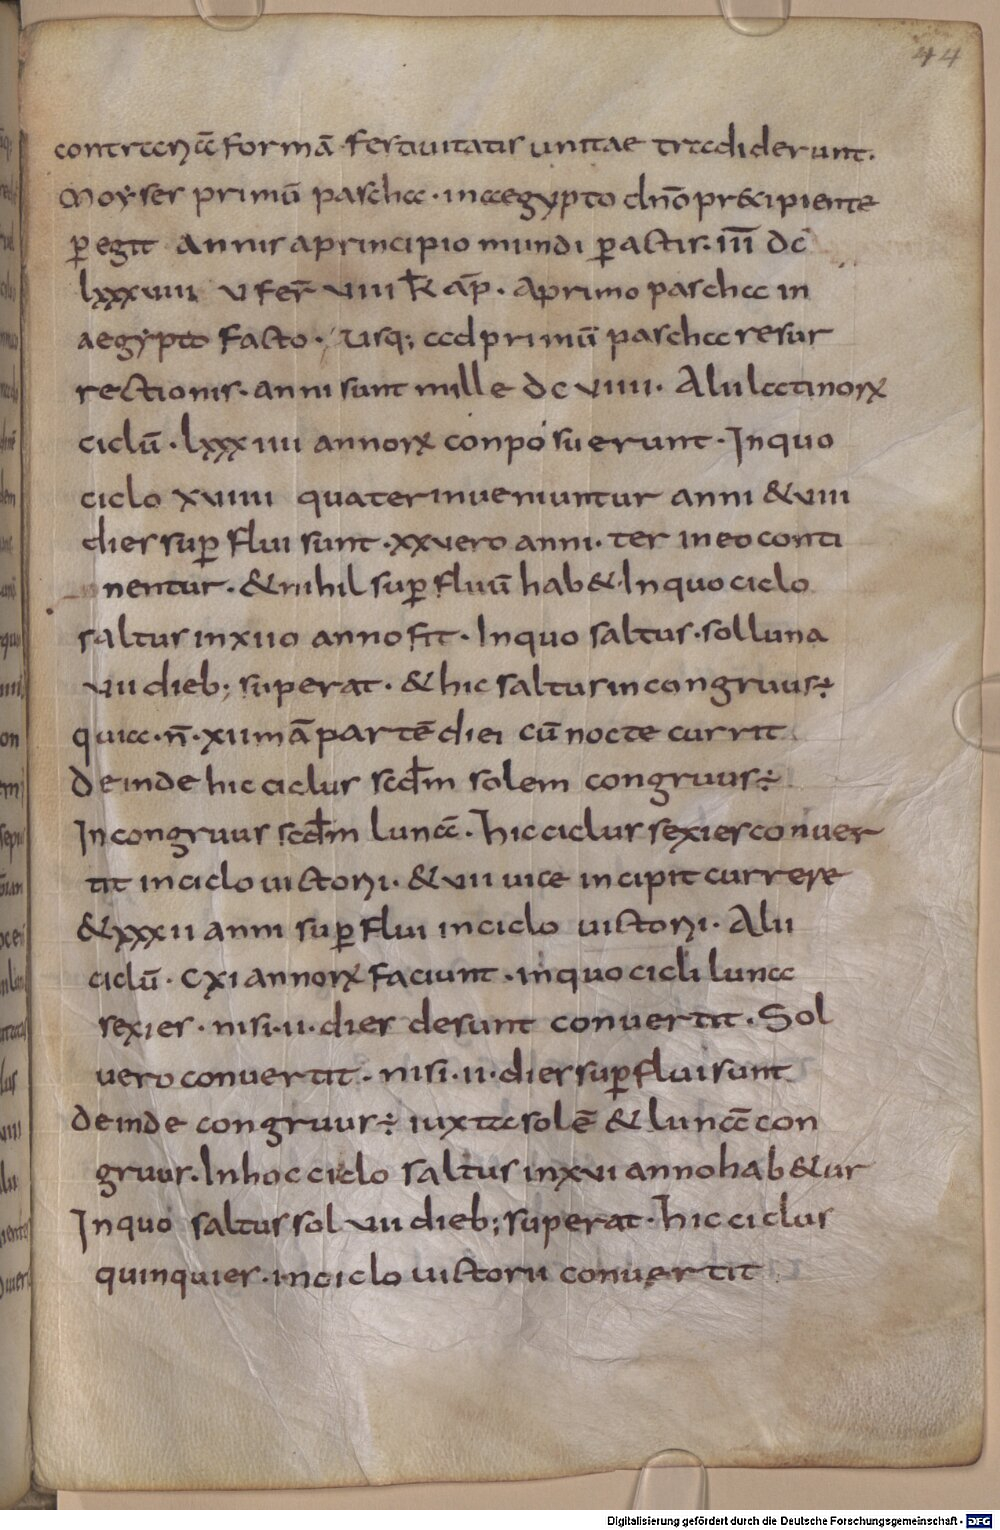 44
contrariā formā festiuitatis unitae tradiderunt.
Moyses primū pascha · inaegypto dn̄o pr&cipiente
p̱egit annis aprincipio mundi p̱actis · iii̅ dc
lxxxuiiii u fer̄ uiii k̄l ap̄. Aprimo pascha in
aegypto facto · usq; ad primū pascha resur
rectionis · anni sunt mille dc uiiii. Alii latinorꝝ
ciclū · lxxxiiii annorꝝ conposuerunt · In quo
ciclo xuiiii quater inueniuntur anni &uiii
dies sup̱flui sunt · xxuero anni · ter ineo conti
nentur · &nihil sup̱fluū hab& · In quo ciclo
saltus inxiio anno fit · In quo saltus · sol luna
uii dieb; superat · & hic saltus incongruus÷
quia · n̄ · xiimā partē diei cū nocte currit
Deinde hic ciclus scd̄m solem congruus÷
Incongruus scd̄m lunā · hic ciclus sexies conuer
tit in ciclo uictorii · &uii uice incipit currere
&xxxii anni sup̱flui in ciclo uictorii · Alii
ciclū · cxi annorꝝ faciunt · in quo cicli luna
sexies · nisi · ii · dies desunt conuertit · Sol
uero conuertit · nisi · ii · dies sup̱flui sunt
deinde congruus÷ iuxta solē & lunā con
gruus · In hoc ciclo saltus inxui anno hab&ur
In quo saltus sol uii dieb; superat · hic ciclus
quinquies · in ciclo uictorii conuertit
Digitalisierung gefördert durch die Deutsche Forschungsgemeinschaft - DFG